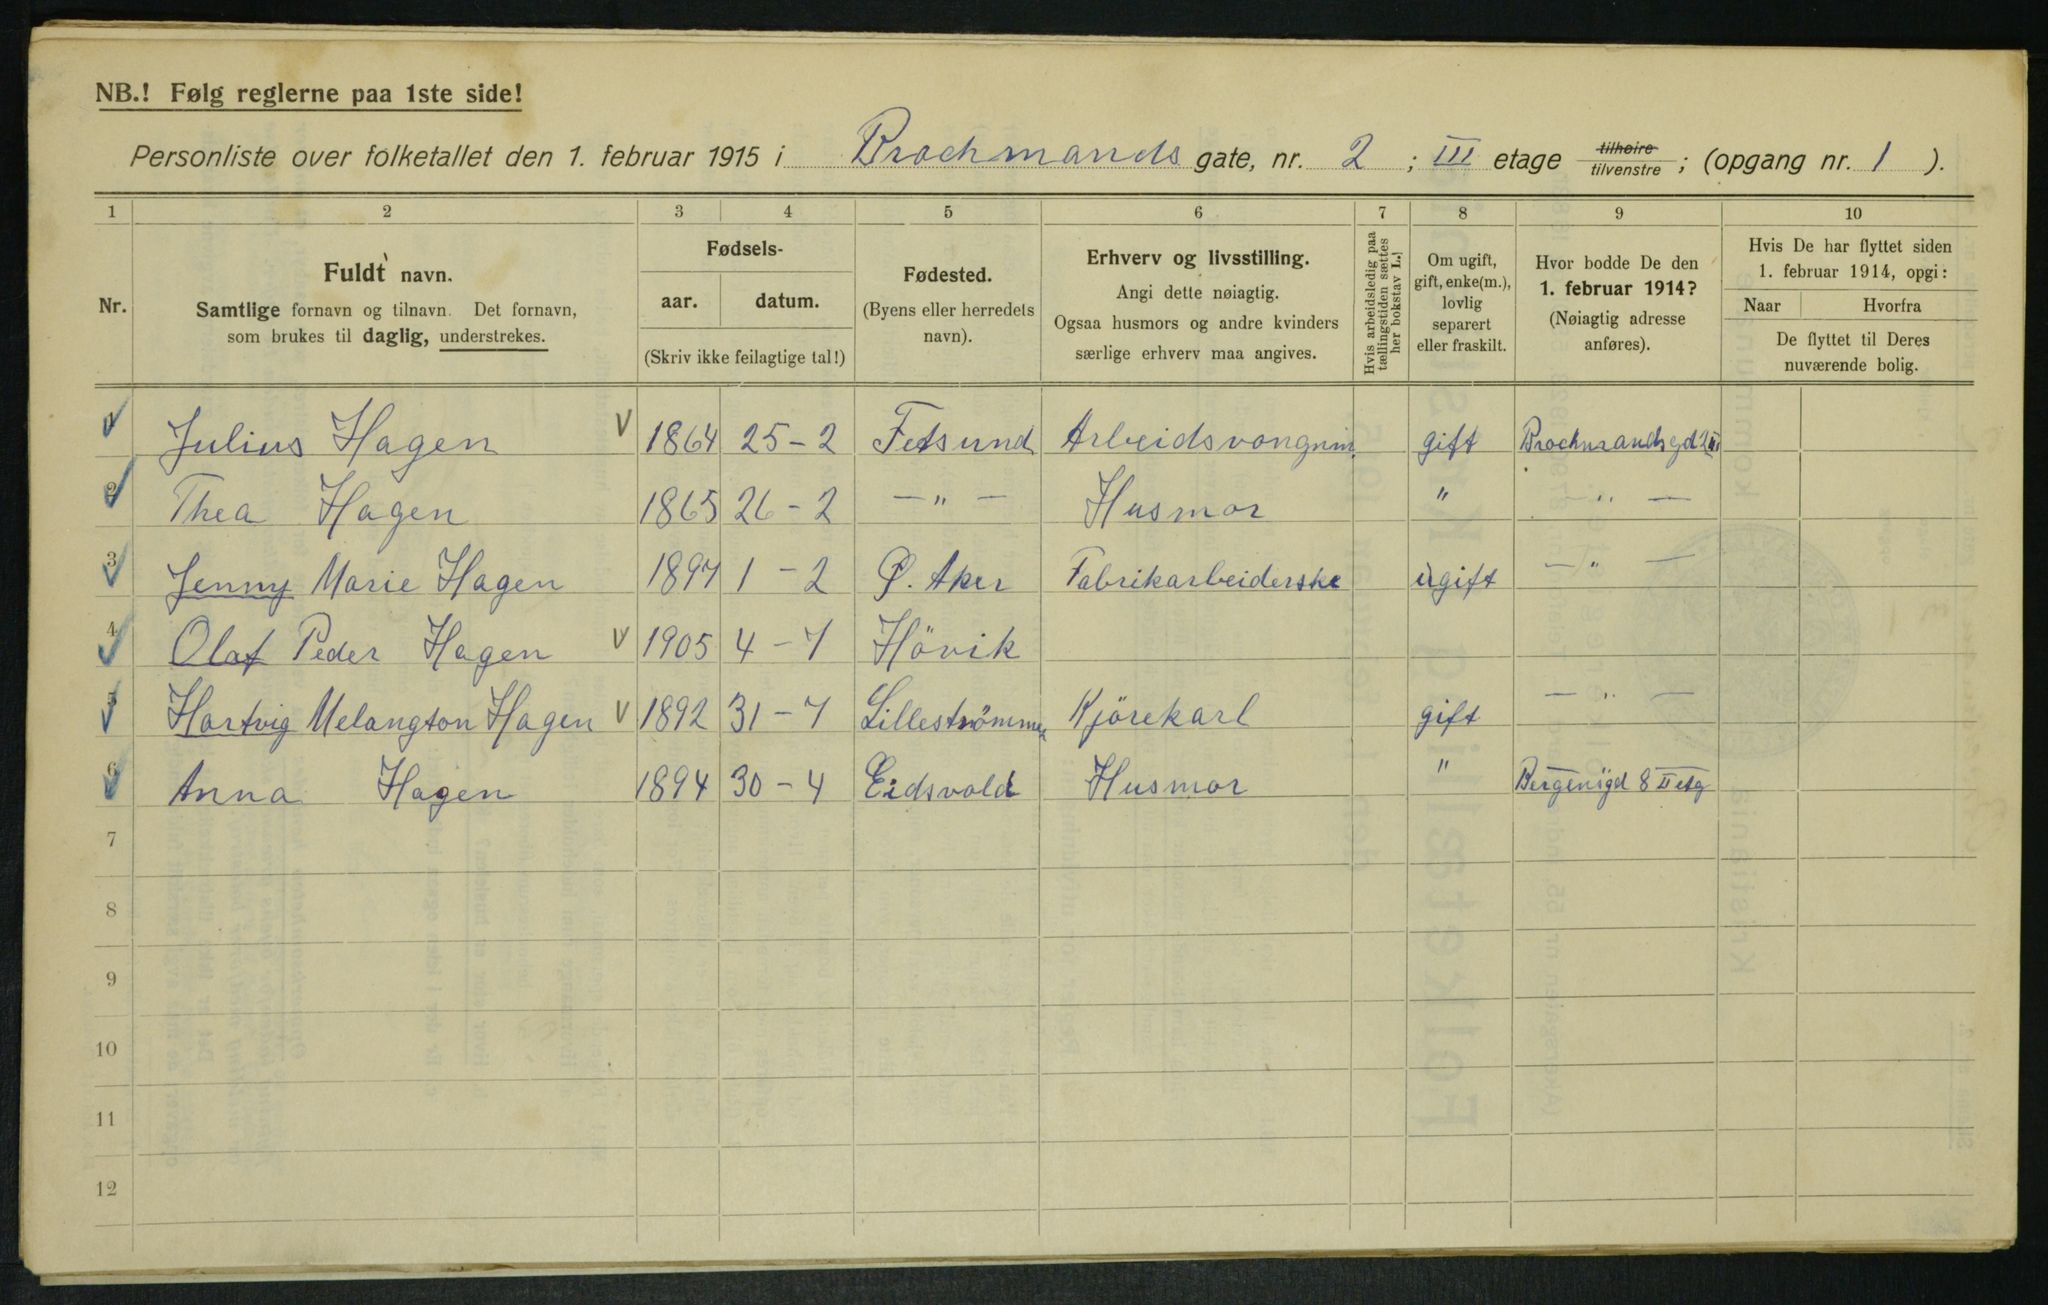 NB.! Følg reglerne paa 1ste side!
Personliste over folketallet den 1. februar 1915 i Brochmands gate, nr. 2 ; III etage tilhøire tilvenstre ; (opgang nr. 1 ).
1 2 3 4 5 6 7 8 9 10
Nr.
Fuldt navn.
Samtlige fornavn og tilnavn. Det fornavn,
som brukes til daglig, understrekes.
Fødsels-
aar. datum.
(Skriv ikke feilagtige tal!)
Fødested.
(Byens eller herredets
navn).
Erhverv og livsstilling.
Angi dette nøiagtig.
Ogsaa husmors og andre kvinders
særlige erhverv maa angives.
Hvis arbeidsledig paa
tællingstiden sættes
her bokstav L.]
Om ugift,
gift, enke(m.),
lovlig
separert
eller fraskilt.
Hvor bodde De den
1. februar 1914?
(Nøiagtig adresse
anføres).
Hvis De har flyttet siden
1. februar 1914, opgi:
Naar Hvorfra
De flyttet til Deres
nuværende bolig.
1 Julius Hagen V 1864 25 - 2 Fetsund gift Brochmandsgd 2 III
2 Thea Hagen 1865 26 - 2 — " — Husmor " — " —
3 Jenny Marie Hagen 1897 1 - 2 Ø. Aker Fabrikarbeiderske ugift — " —
4 Olaf Peder Hagen V 1905 4 - 7 Hövik
5 Hartvig Melangton Hagen V 1892 31 - 7 Lilleströmmen Kjörekarl gift — " —
6 Anna Hagen 1894 30 - 4 Eidsvold Husmor " Bergensgd 8 II etg
7
8
9
10
11
12